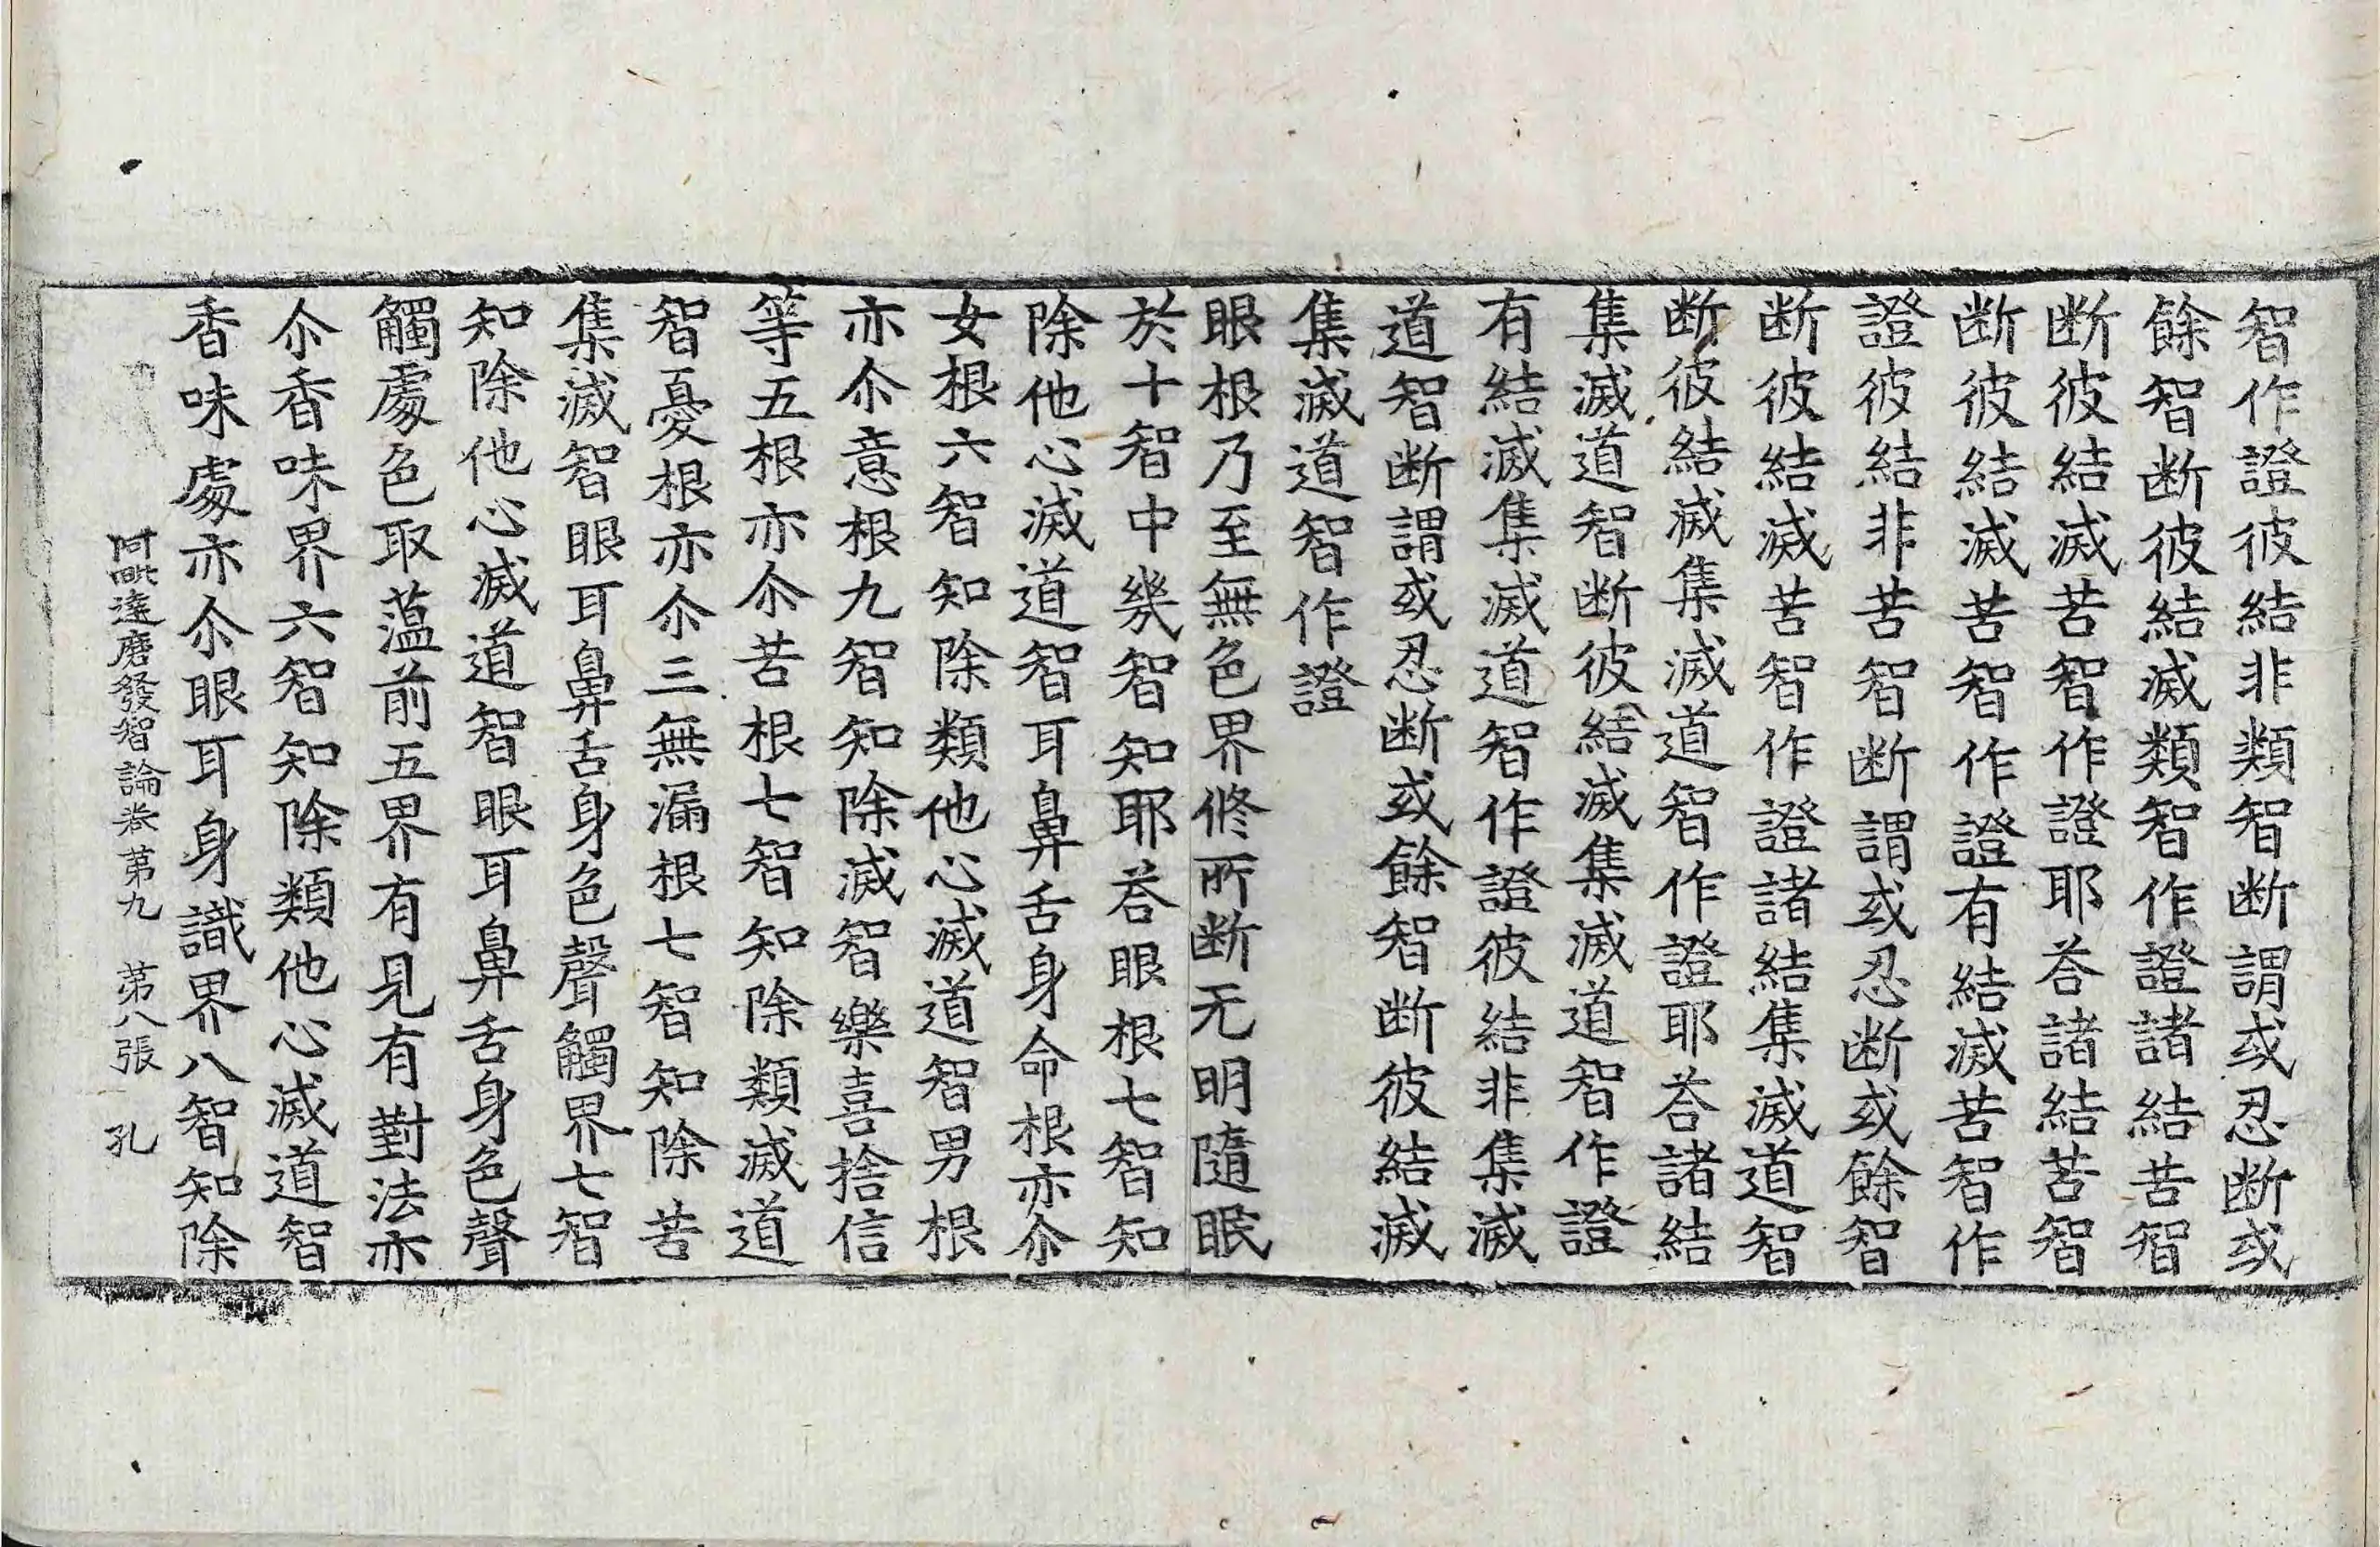 智作證彼結非類智断謂或忍断或
餘智断彼結滅類智作證諸結苦智
断彼結滅苦智作證耶荅諸結苦智
断彼結滅苦智作證有結滅苦智作
證彼結非苦智断謂或忍断或餘智
断彼結滅苦智作證諸結集滅道智
断彼結滅集滅道智作證耶荅諸結
集滅道智断彼結滅集滅道智作證
有結滅集滅道智作證彼結非集滅
道智断謂或忍断或餘智断彼結滅
集滅道智作證
眼根乃至無色界修所断无明隨眠
於十智中㡬智知耶荅眼根七智知
除他心滅道智耳鼻舌身命根亦尒
女根六智知除類他心滅道智男根
亦尒意根九智知除滅智樂喜捨信
等五根亦尒苦根七智知除類滅道
智憂根亦尒三無漏根七智知除苦
集滅智眼耳鼻舌身色聲觸界七智
知除他心滅道智眼耳鼻舌身色聲
觸處色取蕰前五界有見有對法亦
尒香味界六智知除類他心滅道智
香味處亦尒眼耳身識界八智知除
阿毗達磨發智論卷第九 第八張 孔